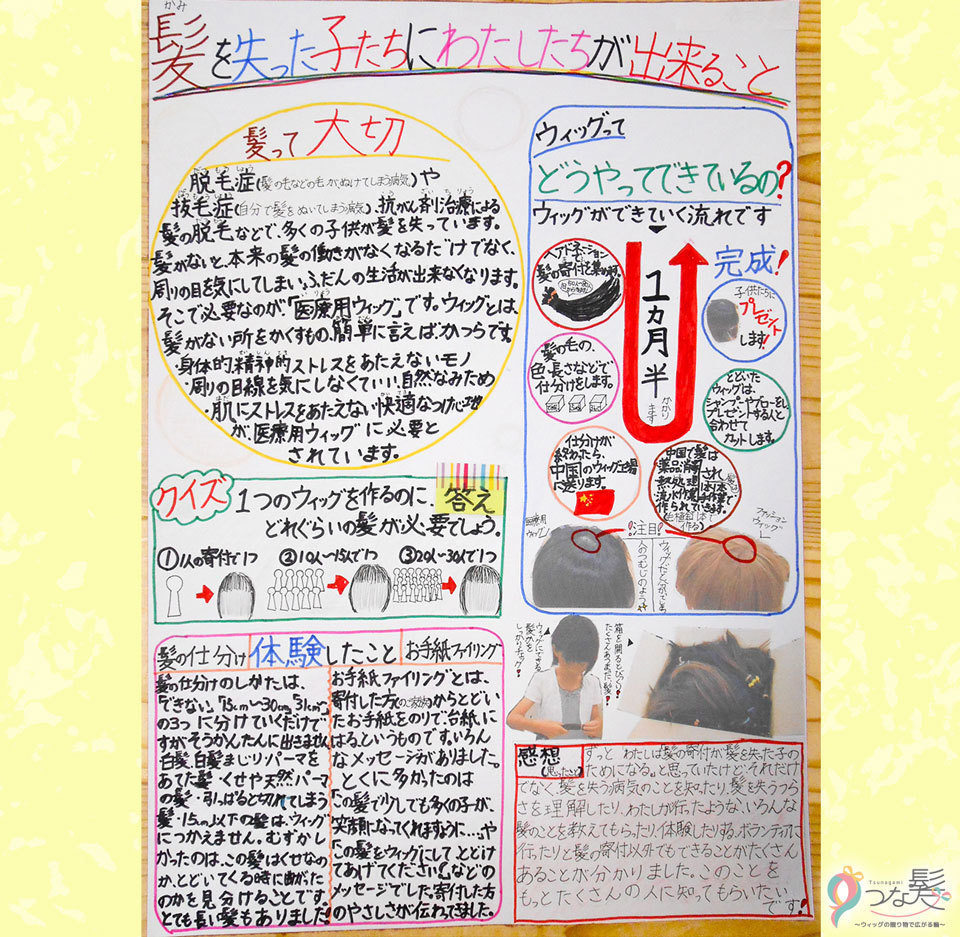 かみ
髪を失った子たちにわたしたちが出来ること
髪って大切
だつもうしょう
脱毛症(髪の毛などの毛がぬけてしまう病気)や
抜毛症(自分で髪をぬいてしまう病気)、抗がん剤治療による
髪の脱毛などで、多くの子供が髪を失っています。
髪がないと、本来の髪の働きがなくなるだけでなく、
周りの目を気にしてしまい、ふだんの生活が出来なくなります。
そこで必要なのが、「医療用ウィッグ」です。ウィッグとは、
髪がない所をかくすもの、簡単に言えばかつらです。
・身体的精神的ストレスをあたえないモノ
・周りの目線を気にしなくていい、自然なみため
・肌にストレスをあたえない快適なつけ心地
が、医療用ウィッグに必要と
されています。
ウィッグって
どうやってできているの?
ウィッグができていく流れです
ヘアドネーションで
髪の寄付を集めます。
髪の毛の、
色・長さなどで
仕分けをします。
仕分けが
終わったら、
中国のウィッグ工場
に送ります。
中国で髪は
薬品消毒され
熱処理
流れ作業で
作られていきます。
1カ月半
かかり
ます
とどいた
ウィッグは、
シャンプーやブローをし、
プレゼントする人と
合わせて
カットします。
完成!
子供たちに
プレゼント
します!
医療用
ウィッグ
注目!
ファッション
ウィッグ
人のつむじのよう
クイズ
1つのウィッグを作るのに、
どれぐらいの髪が必要でしょう。
答え
①1人の寄付で1つ
②10人〜15人で1つ
③20人〜30人で1つ
髪の仕分け
体験したこと
お手紙ファイリング
髪の仕分けのしかたは、
「できない」「15cm〜30cm」「31cm〜」
の3つに分けていくだけで
すが、そうかんたんに出きません。
白髪、白髪まじり、パーマを
あてた髪・くせや天然パーマ
の髪・引っぱると切れてしまう
髪・15cm以下の髪は、ウィッグ
につかえません。むずかし
かったのは、この髪はくせなの
か、とどいてくる時に曲がった
のかを見分けることです。
とても長い髪もありました!
お手紙ファイリングとは、
寄付した方(のご家族)からとどい
たお手紙をのりで、台紙に
はる、というものです。いろん
なメッセージがありました。
とくに多かったのは
「この髪で少しでも多くの子が、
笑顔になってくれますように…」や
「この髪をウィッグにして、とどけ
てあげてください」などの
メッセージでした。寄付した方
のやさしさが伝わってきました。
ウィッグにできる
髪かを
しっかりチェック!
箱を開けるとびっくり!
たくさんあつまった髪!
感想
(思ったこと)
ずっと わたしは髪の寄付が髪を失った子の
ためになる。と思っていたけど、それだけ
でなく、髪を失う病気のことを知ったり、髪を失うつら
さを理解したり、わたしが行ったような、いろんな
髪のことを教えてもらったり、体験したりする、ボランティアに
行ったりと髪の寄付以外でもできることがたくさん
あることが分かりました。このことを
もっとたくさんの人に知ってもらいたい
です!
Tsunagami
つな髪
〜ウィッグの贈り物で広がる輪〜